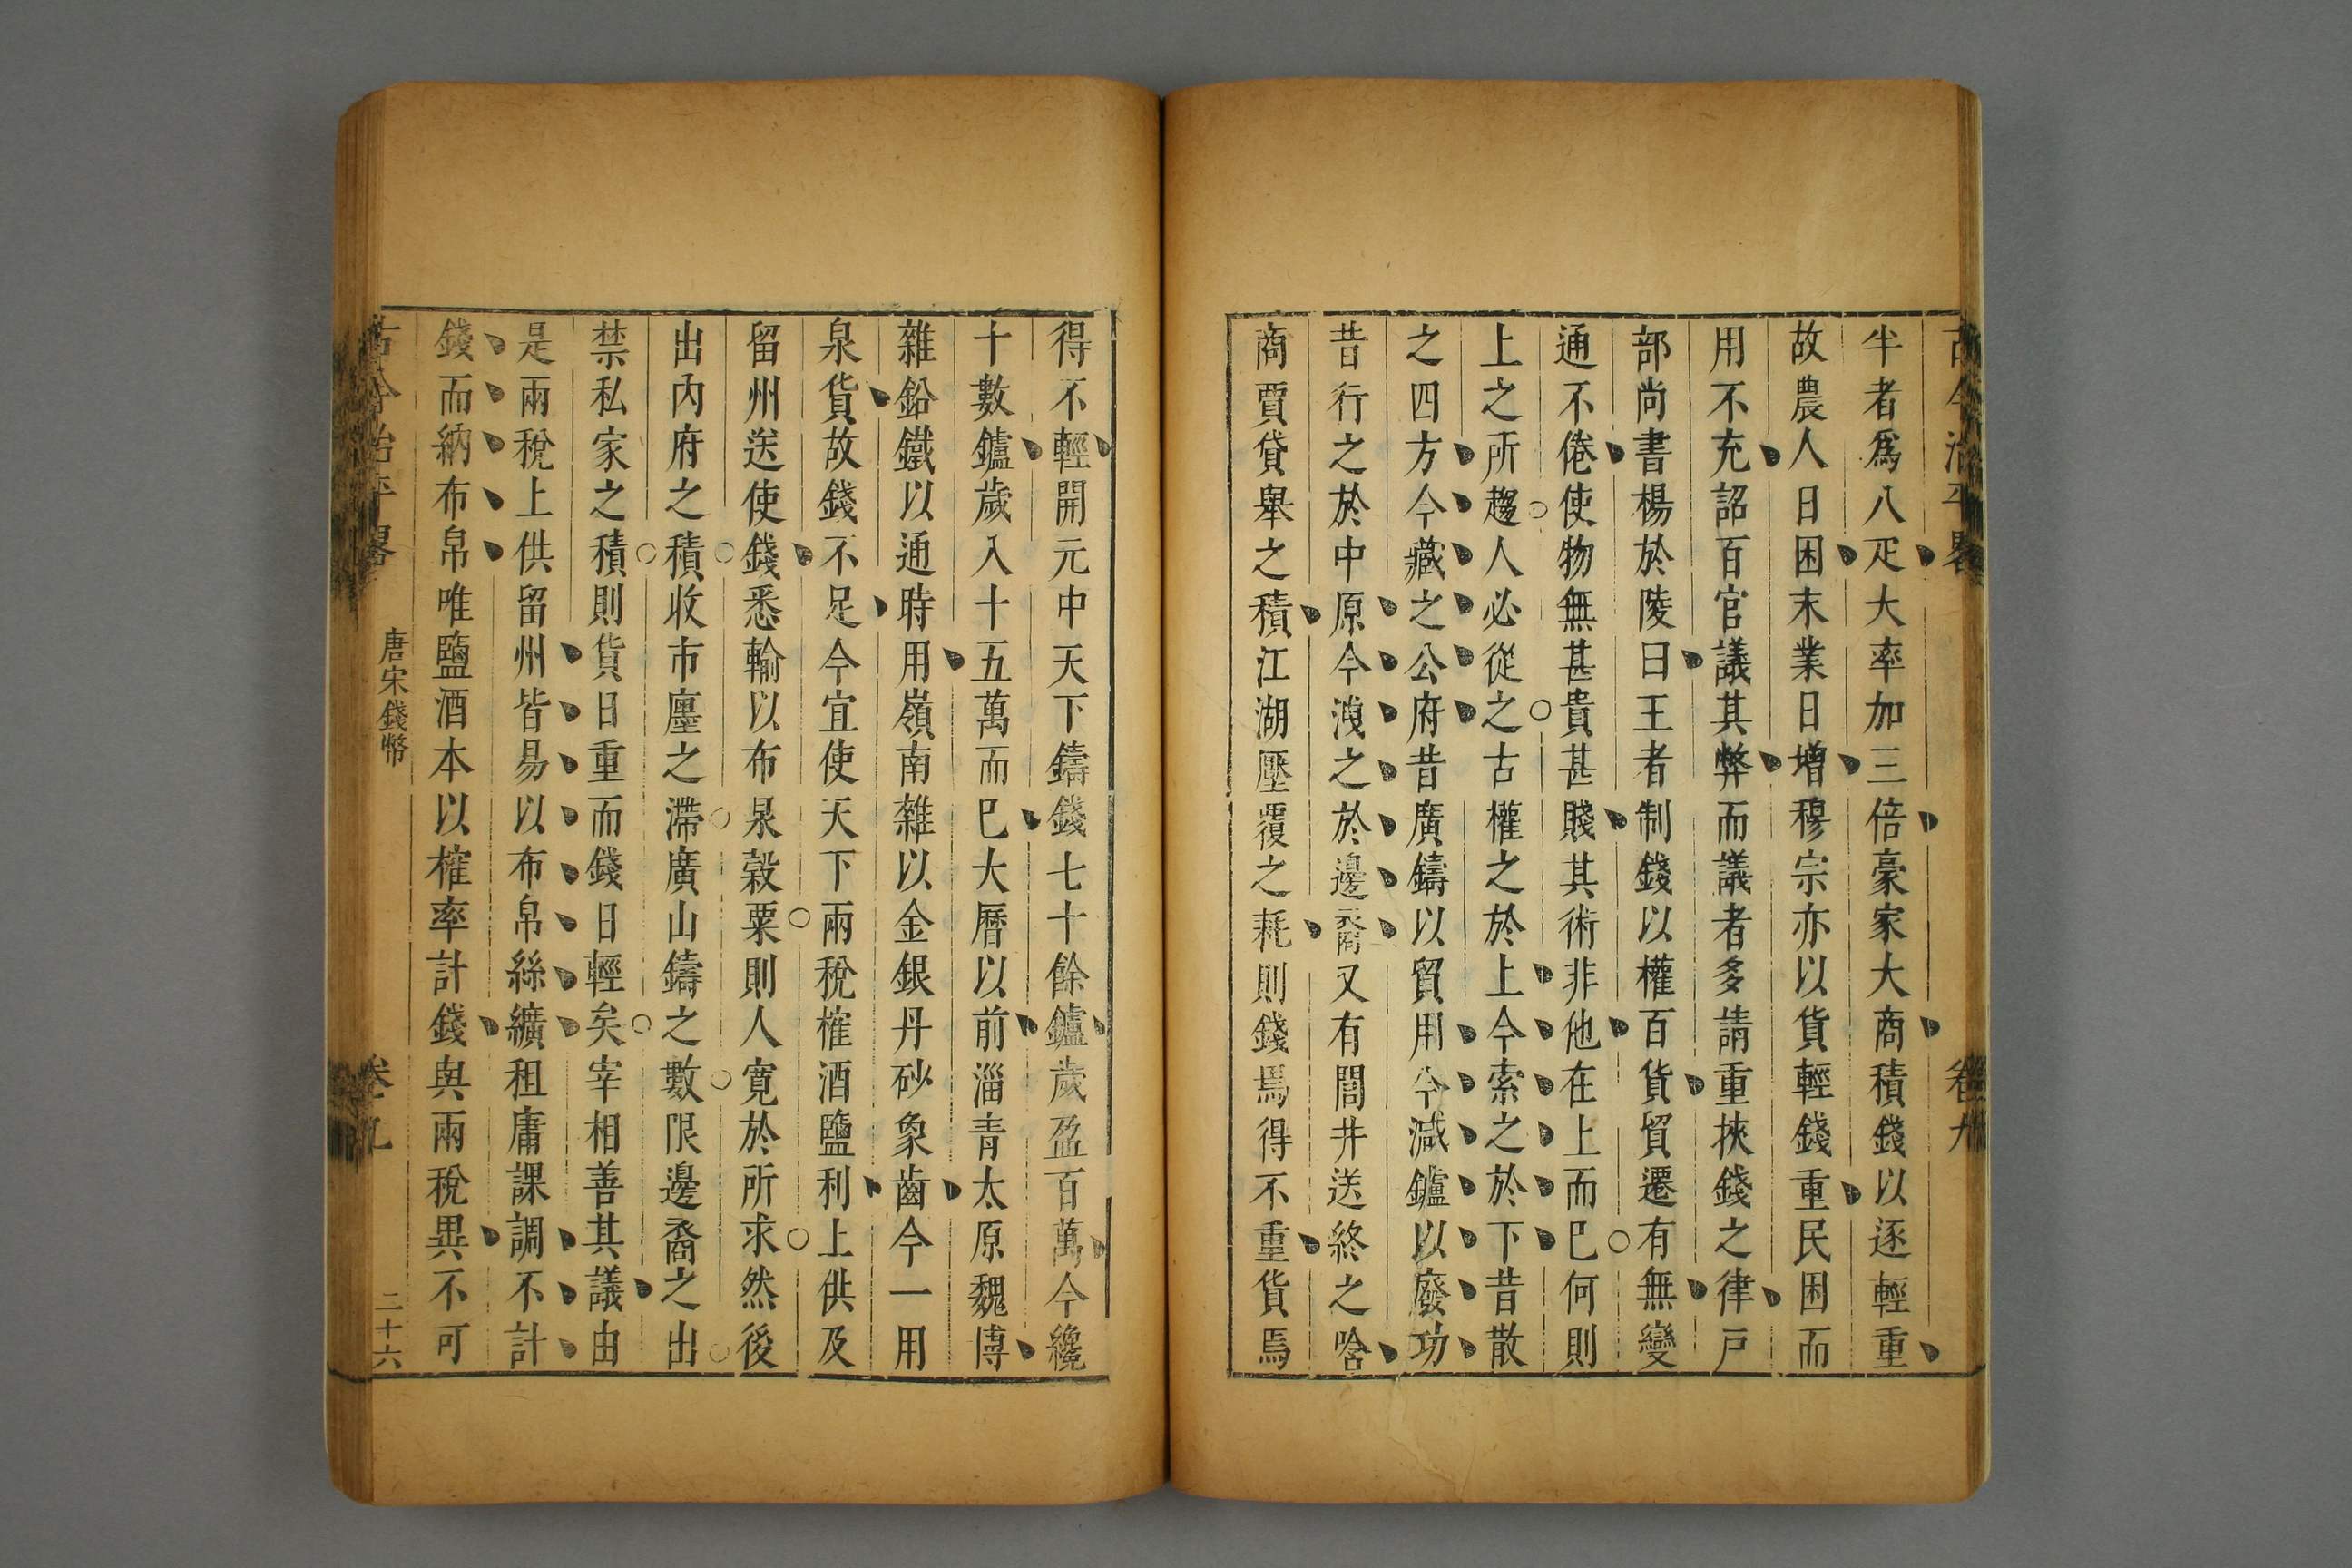 古今治平畧 卷九
半者爲八疋大率加三倍豪家大商積錢以逐輕重
故農人日困末業日增穆宗亦以貨輕錢重民困而
用不充詔百官議其弊而議者多請重挾錢之律戶
部尚書楊於陵曰王者制錢以權百貨貿遷有無變
通不倦使物無甚貴甚賤其術非他在上而巳何則
上之所趨人必從之古權之於上今索之於下昔散
之四方今藏之公府昔廣鑄以貿用今減鑪以廢功
昔行之於中原今洩之於邊裔又有閭井送終之唅
商賈貸舉之積江湖壓覆之耗則錢焉得不重貨焉
得不輕開元中天下鑄錢七十餘鑪歲盈百萬今纔
十數鑪歲入十五萬而巳大曆以前淄青太原魏博
雜鉛鐵以通時用嶺南雜以金銀丹砂象齒今一用
泉貨故錢不足今宜使天下兩稅榷酒鹽利上供及
留州送使錢悉輸以布帛穀粟則人寬於所求然後
出內府之積收市廛之滯廣山鑄之數限邊裔之出
禁私家之積則貨日重而錢日輕矣宰相善其議由
是兩稅上供留州皆易以布帛絲纊租庸課調不計
錢而納布帛唯鹽酒本以榷率計錢與兩稅異不可
古今治平畧 唐宋錢幣 卷九 二十六